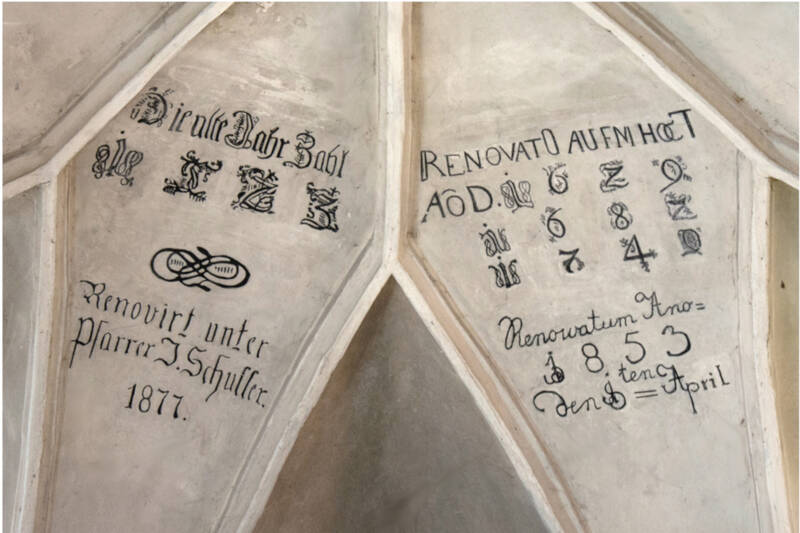 Die alte Jahr Zahl
Renovirt unter
Pfarrer J. Schuller.
1877.
RENOVATO AUFM HOCT
AÔD. 1 6 2 9
1 6 8 2
1 7 4 0
Renowatum Ano=
1 8 5 3
den 1 tenc = April